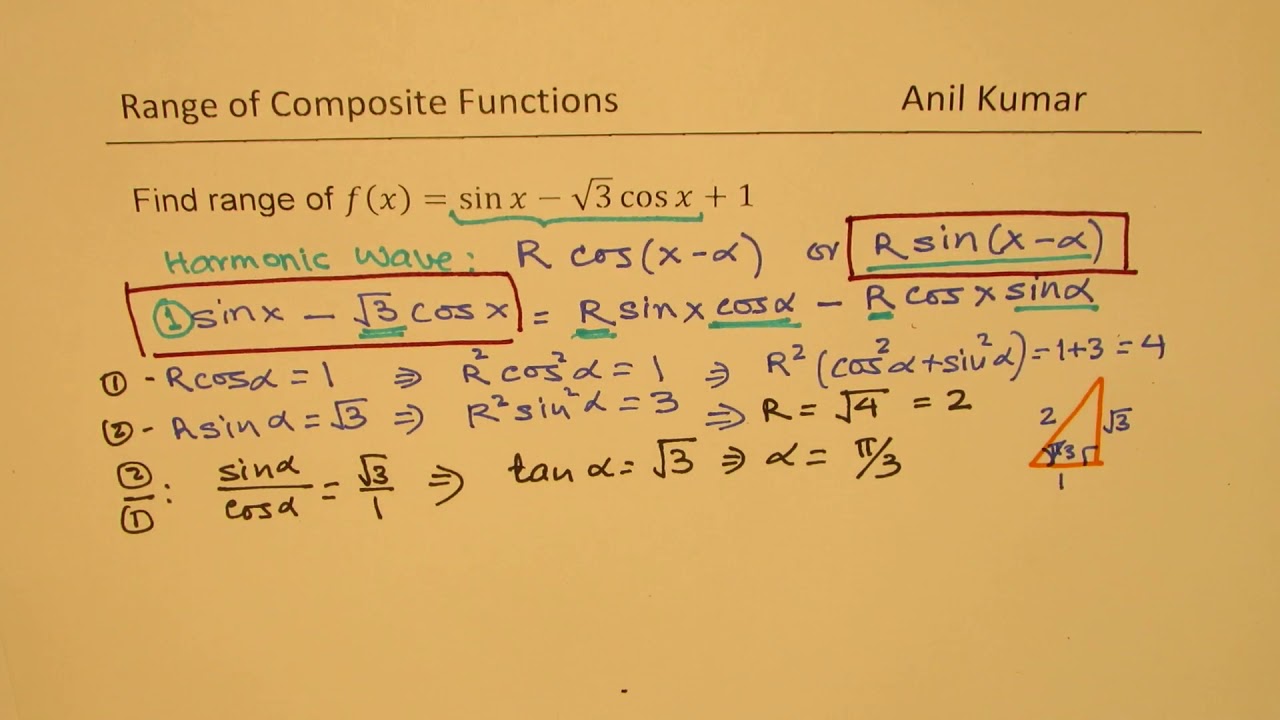 Range of Composite Functions Anil Kumar
Find range of f(x) = sin x − √3 cos x + 1
Harmonic Wave: R cos(x-α) or R sin(x-α)
① sinx − √3 cosx = R sinx cosα − R cosx sinα
① - Rcosα = 1 ⇒ R² cos²α = 1 ⇒ R² (cos²α + sin²α) = 1+3 = 4
② - Rsinα = √3 ⇒ R² sin²α = 3 ⇒ R = √4 = 2
②/① : sinα/cosα = √3/1 ⇒ tan α = √3 ⇒ α = π/3
2 √3
π/3
1